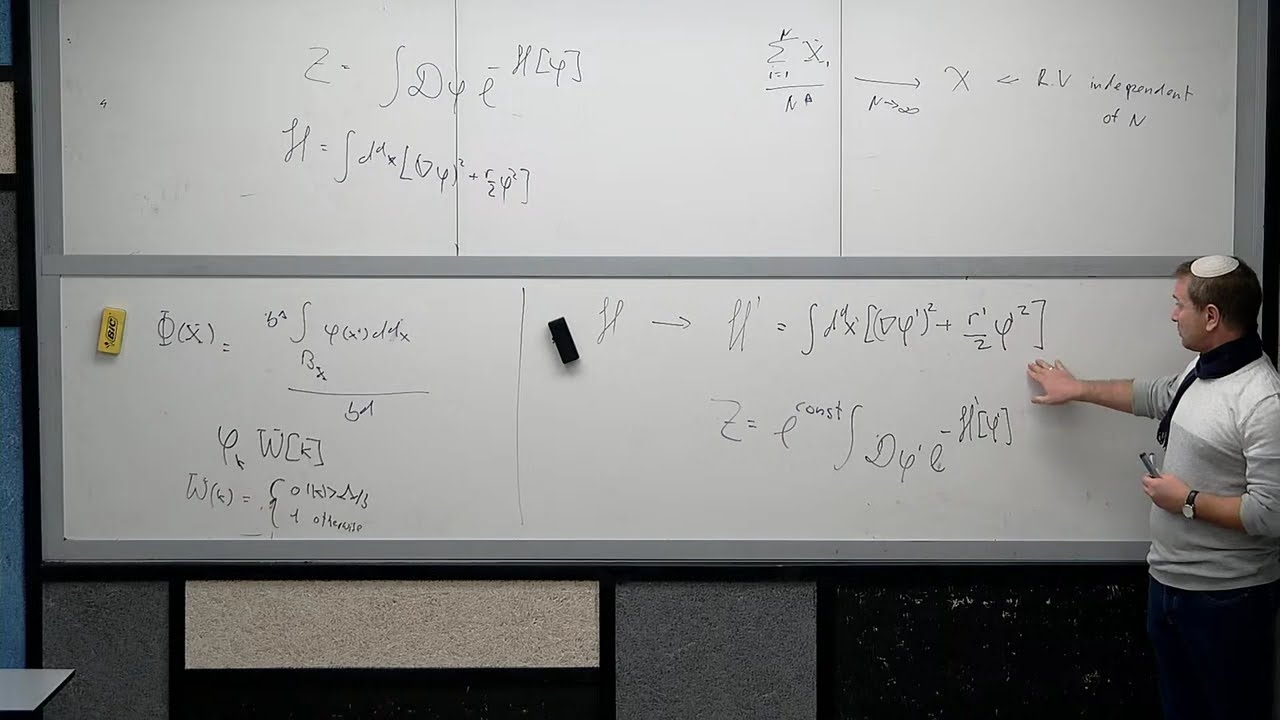 Z = ∫ Dφ e^{-H[φ]}
H = ∫ d^d x [(∇φ)² + r/2 φ²]
Σ_{i=1}^{N} X_i / N^Δ → _{N→∞} X ← R.V independent
of N
BIC
Φ(x) = b^Δ ∫_{B_x} φ(x') d^d x / b^d
φ_k W̃[k]
W̃(k) = { 0 |k| > Λ/b
1 otherwise
H → H' = ∫ d^d x' [(∇φ')² + r'/2 φ'²]
Z = e^{const} ∫ Dφ' e^{-H'[φ']}